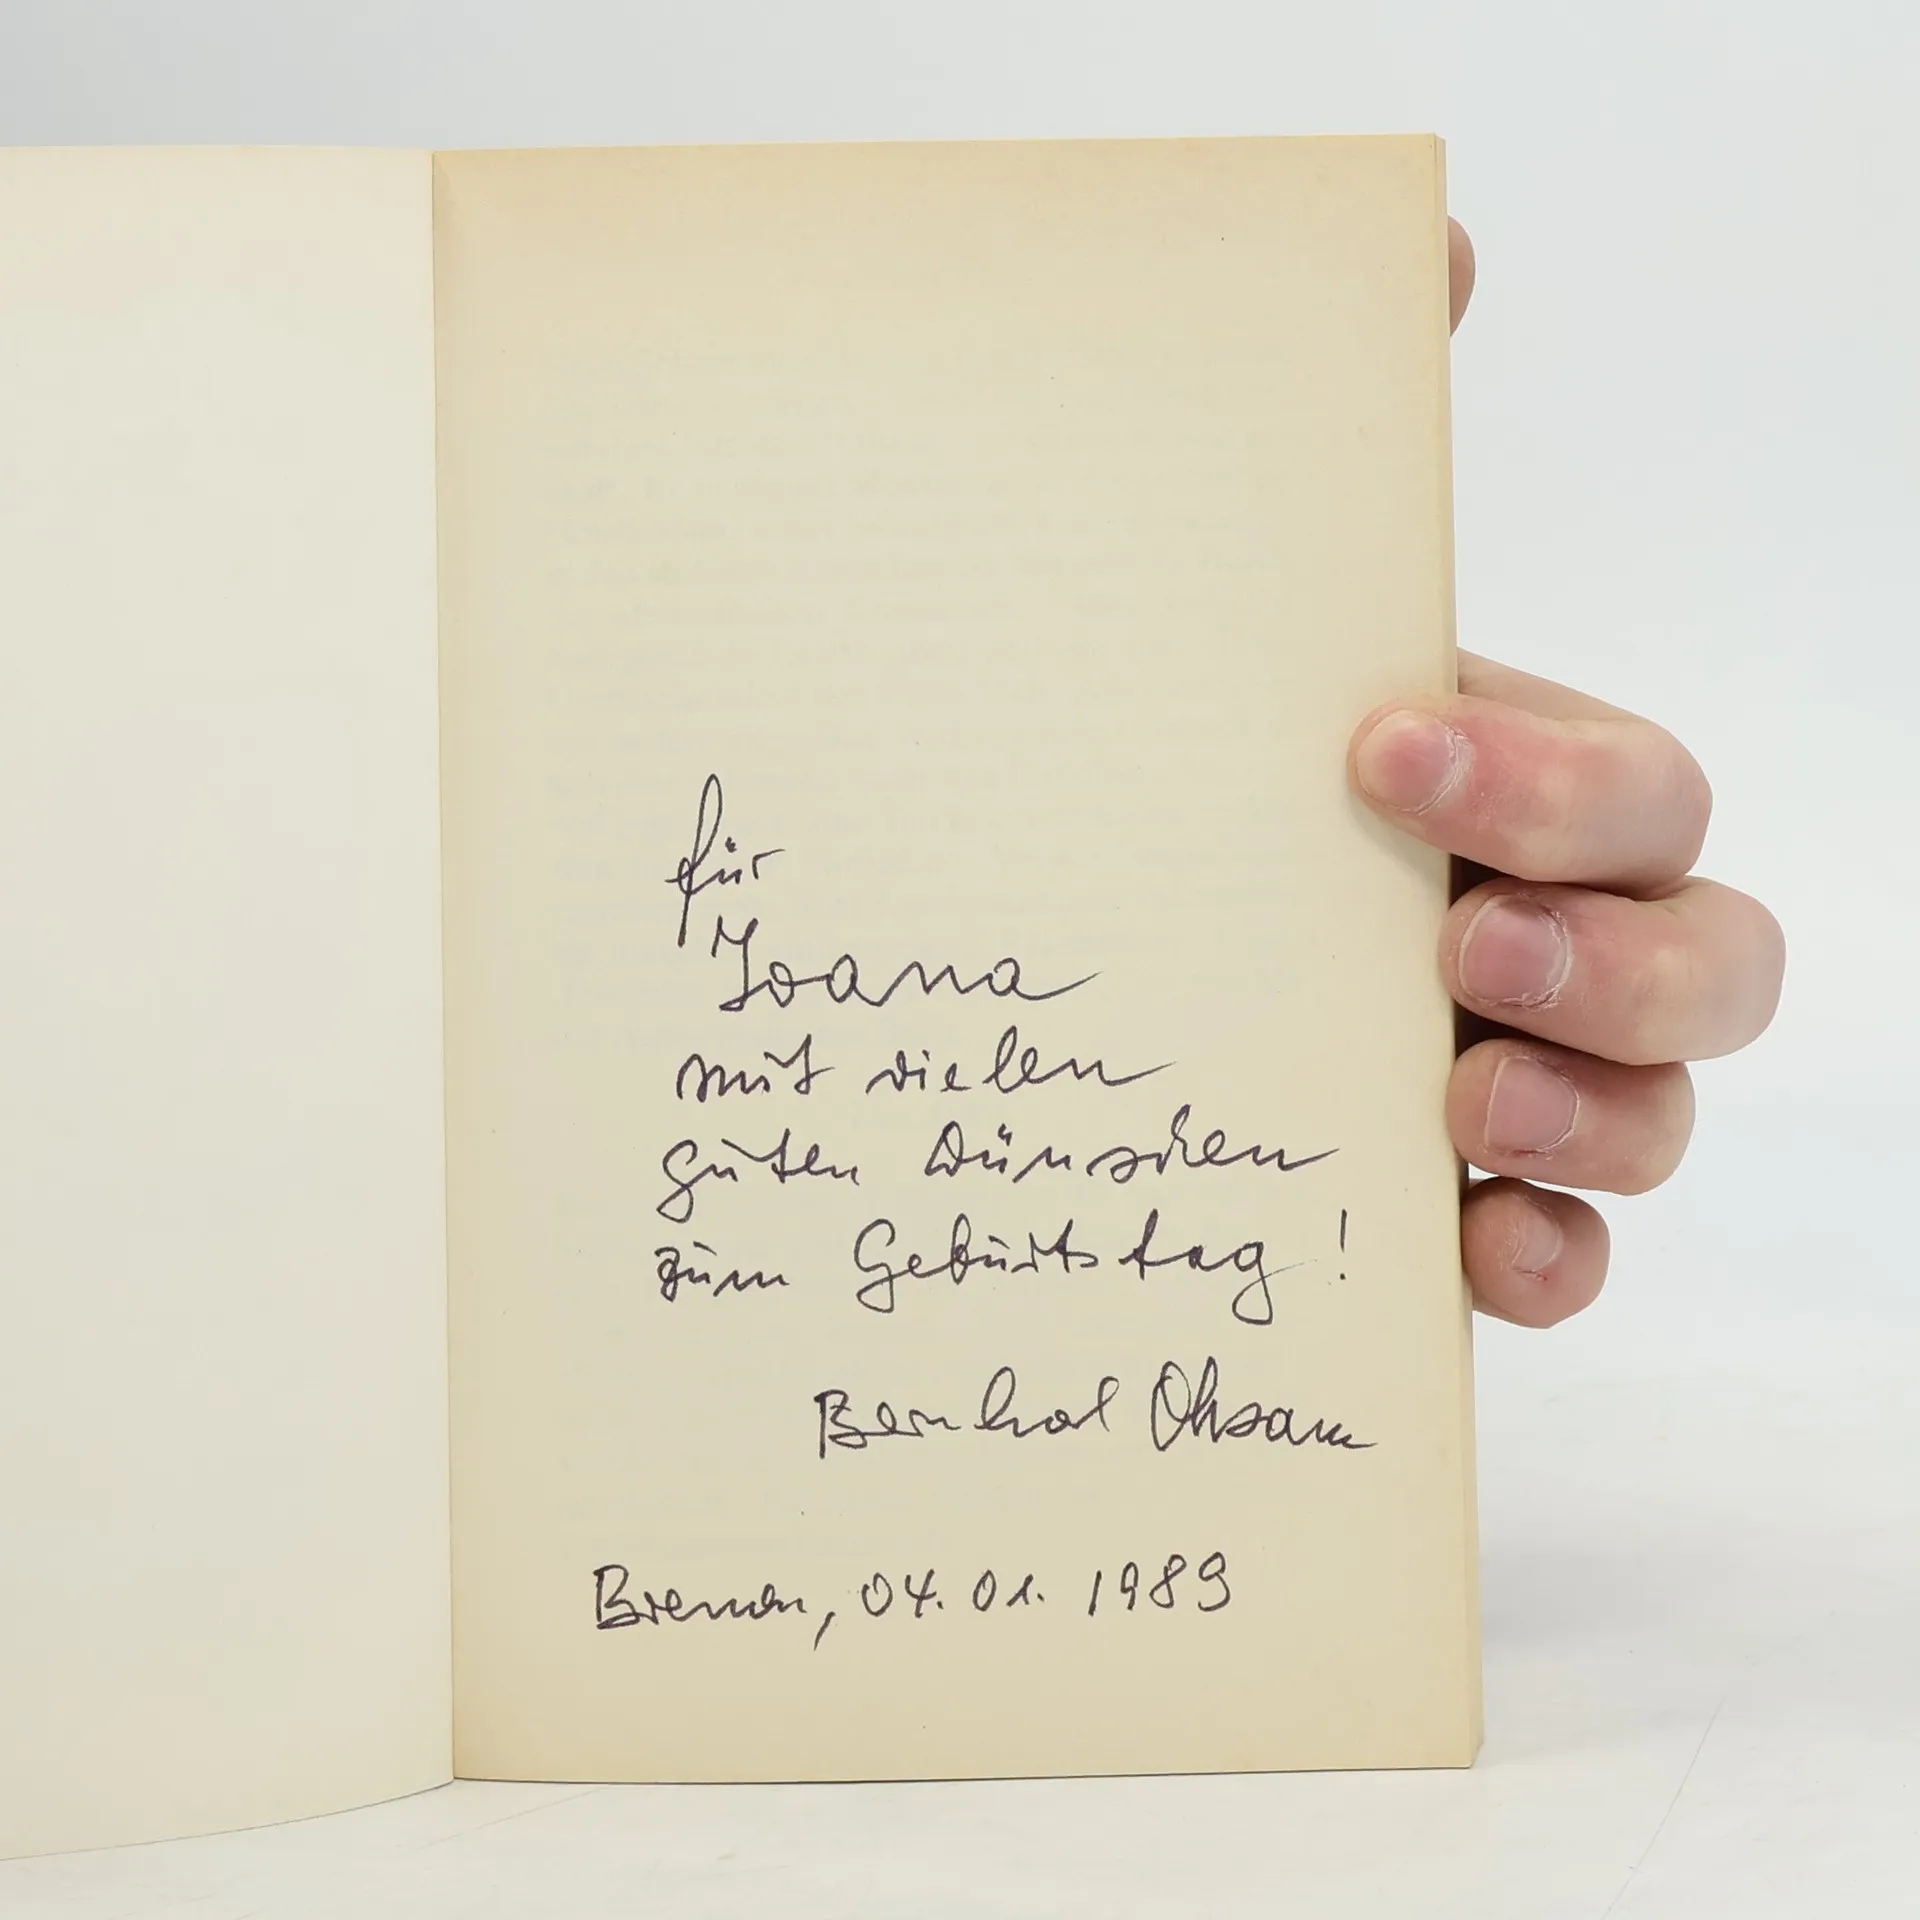 für
Ioana
mit vielen
guten Wünschen
zum Geburtstag!
Bernhard Ohsam
Bremen, 04.01.1989